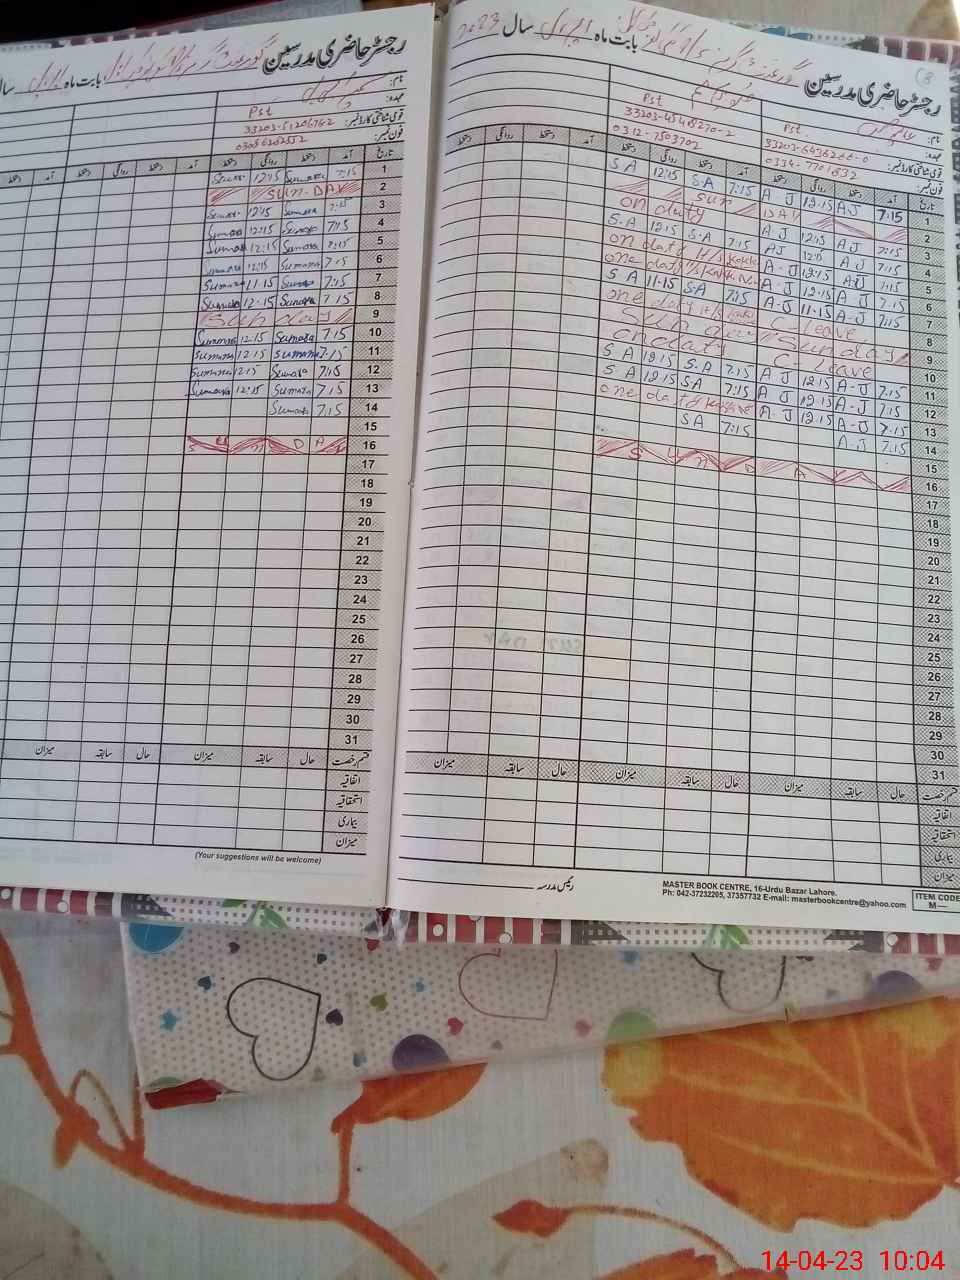 رجسٹر حاضری مدرسین
بابت ماہ اپریل سال 2023
نام:
عہدہ: Pst Pst
قومی شناختی کارڈ نمبر:
33203-6436266-0
فون نمبر: 0334-7701832
0312-7503702
تاریخ آمد دستخط روانگی دستخط آمد دستخط روانگی دستخط
1 7:15 A J 12:15 A-J 7:15 S A 12:15 S.A
2 SUN DAY
3 7:15 A J 12:15 A-J on duty
4 7:15 A J 12:15 AJ 7:15 S-A 12:15 S.A
5 7:15 A-J 12:15 A-J on duty H/S
6 7:15 A-J 12:15 A-J one duty H/S
7 7:15 A-J 11:15 A-J 7:15 S A 11-15 S A
8 C-Leave one duty H/S
9 Sunday Sun day
10 C-Leave on duty
11 7:15 A-J 12:15 A J 7:15 S.A 12:15 S A
12 7:15 A-J 12:15 A J 7:15 SA 12:15 S.A
13 7:15 A-J 12:15 A-J one duty
14 7:15 A-J 7:15 SA
15
16 S U N D A Y
17
18
19
20
21
22
23
24
25
26
27
28
29
30
31
قسم رخصت حال سابقہ میزان حال سابقہ میزان حال سابقہ میزان
اتفاقیہ
استحقاقیہ
بیماری
میزان
رئیس مدرسہ
MASTER BOOK CENTRE, 16-Urdu Bazar Lahore.
Ph: 042-37232205, 37357732 E-mail: masterbookcentre@yahoo.com
ITEM CODE
M—
رجسٹر حاضری مدرسین
بابت ماہ اپریل
نام:
عہدہ: Pst
قومی شناختی کارڈ نمبر: 33203-5120676-2
فون نمبر:
تاریخ آمد دستخط روانگی دستخط آمد دستخط روانگی دستخط
1 7:15 Sumara 12:15 Sumara
2 SUN-DAY
3 7:15 Sumara 12:15 Sumara
4 7:15 Sumara 12:15 Sumara
5 7:15 Sumara 12:15 Sumara
6 7:15 Sumara 12:15 Sumara
7 7:15 Sumara 11:15 Sumara
8 7:15 Sumara 12-15 Sumara
9 Sun day
10 7:15 Sumara 12:15 Sumara
11 7:15 Sumara 12:15 Sumara
12 7:15 Sumara 12:15 Sumara
13 7:15 Sumara 12:15 Sumara
14 7:15 Sumara
15
16 S U N D A Y
17
18
19
20
21
22
23
24
25
26
27
28
29
30
31
قسم رخصت حال سابقہ میزان حال سابقہ میزان
اتفاقیہ
استحقاقیہ
بیماری
میزان
(Your suggestions will be welcome)
14-04-23 10:04